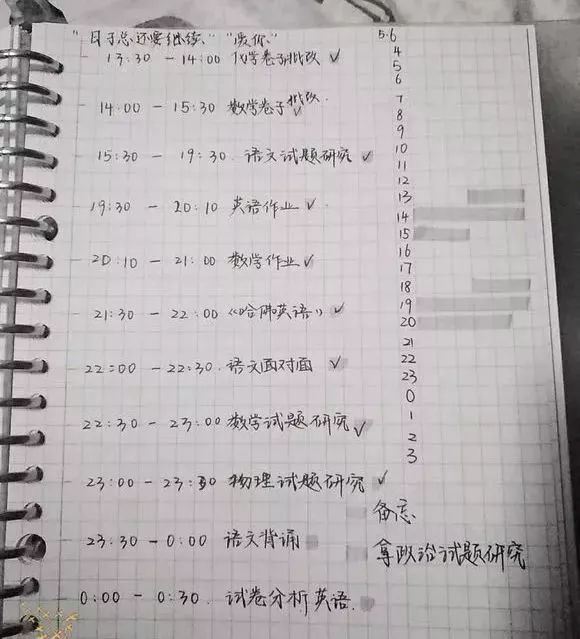 "日子总还要继续." "废你."
13:30 - 14:00 化学卷子批改 ✓
14:00 - 15:30 数学卷子批改. ✓
15:30 - 19:30. 语文试题研究 ✓
19:30 - 20:10 英语作业 ✓
20:10 - 21:00 数学作业 ✓
21:30 - 22:00 《哈佛英语》 ✓
22:00 - 22:30. 语文面对面 ✓
22:30 - 23:00 数学试题研究 ✓
23:00 - 23:30 物理试题研究 ✓
23:30 - 0:00 语文背诵
0:00 - 0:30. 试卷分析英语.
5.6
4
5
6
7
8
9
10
11
12
13
14
15
16
17
18
19
20
21
22
23
0
1
2
3
备忘.
拿政治试题研究